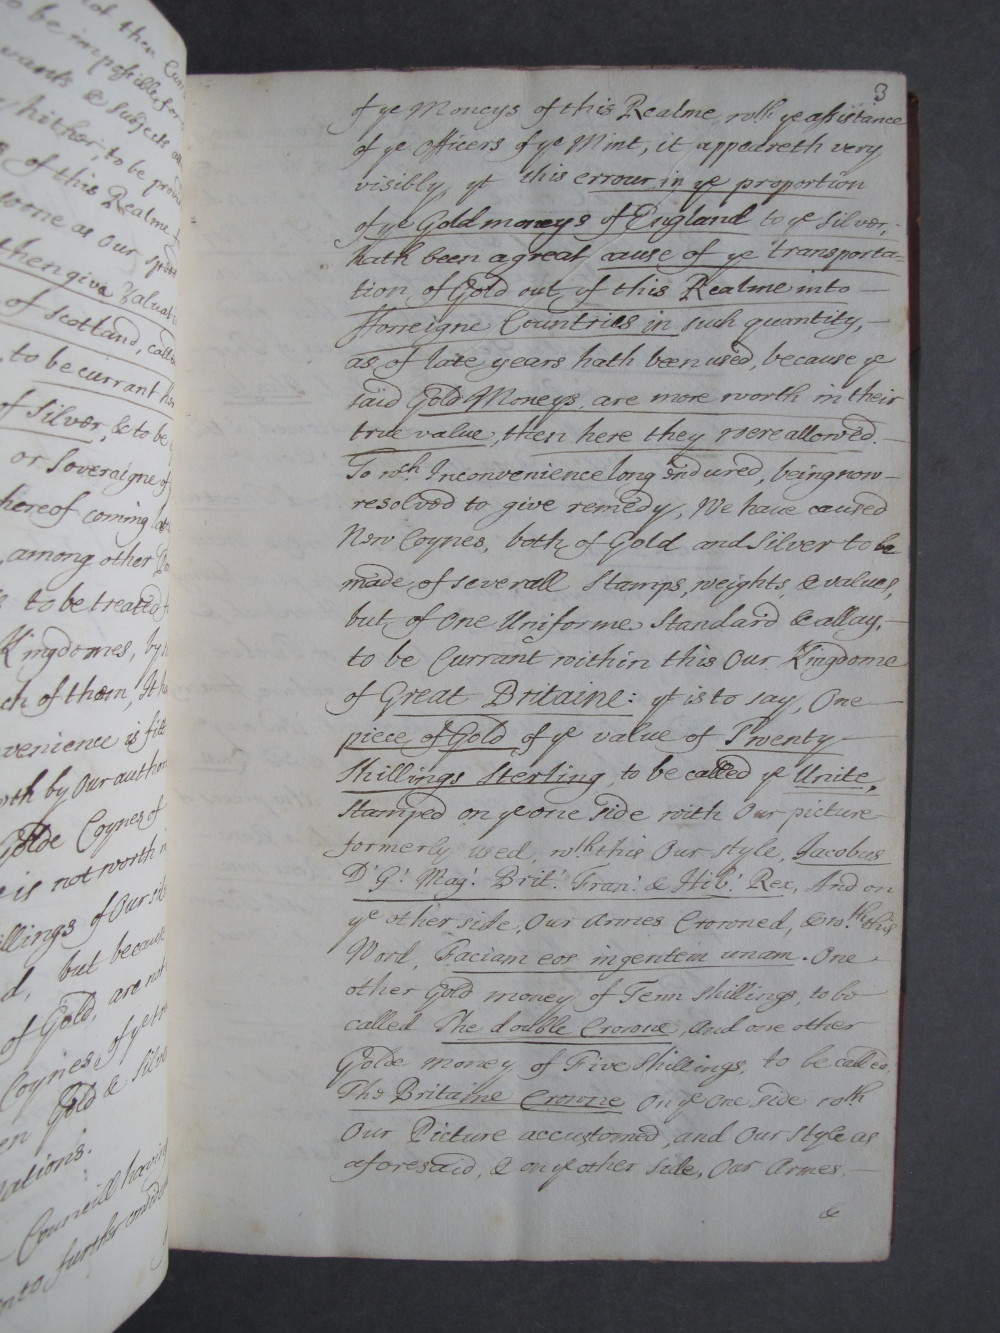 not then Curr
to be impossible for
wants & Subjects as
hither, to be prod
of this Realme
some as Our
then give Valuat
of Scotland, call
to be currant her
of Silver, & to be
or Soveraigne of
hereof coming
among other
to be treated
Kingdomes, by
ch of them, It ha
venience is fitt
rth by Our author
Golde Coynes of
is not worth
illings of Our sil
d, but because
of Gold, are not
Coynes of ye
en Gold & Silv
ations.
Councill having
nto further consid
3
of ye Moneys of this Realme, wth ye assistance
of ye Officers of ye Mint, it appeareth very
visibly, yt this errour in ye proportion
of ye Gold moneys of England to ye Silver,
hath been a great cause of ye transporta=
tion of Gold out of this Realme into
fforreigne Countries in such quantity,
as of late years hath been used, because ye
said Gold Moneys, are more worth in their
true value, then here they were allowed.
To wch Inconvenience long endured, being now
resolved to give remedy, We have caused
New Coynes, both of Gold and Silver to be
made of severall Stamps, weights, & values,
but of One Uniforme Standard & allay,
to be Currant within this Our Kingdome
of Great Britaine: yt is to say, One
piece of Gold of ye value of Twenty
Shillings Sterling, to be called ye Unite,
Stamped on ye one side with Our picture
formerly used, wth this Our Style, Jacobus
D'. G'. Mag'. Brit'. Fran'. & Hib'. Rex, And on
ye other side, Our Armes Crowned, & wth this
Word, Faciam eos in gentem unam. One
other Gold money of Tenn Shillings, to be
called The double Crowne, and one other
Golde money of Five Shillings, to be called,
The Britaine Crowne On ye One side wth
Our Picture accustomed, and Our Style as
aforesaid, & on ye other side, Our Armes
&